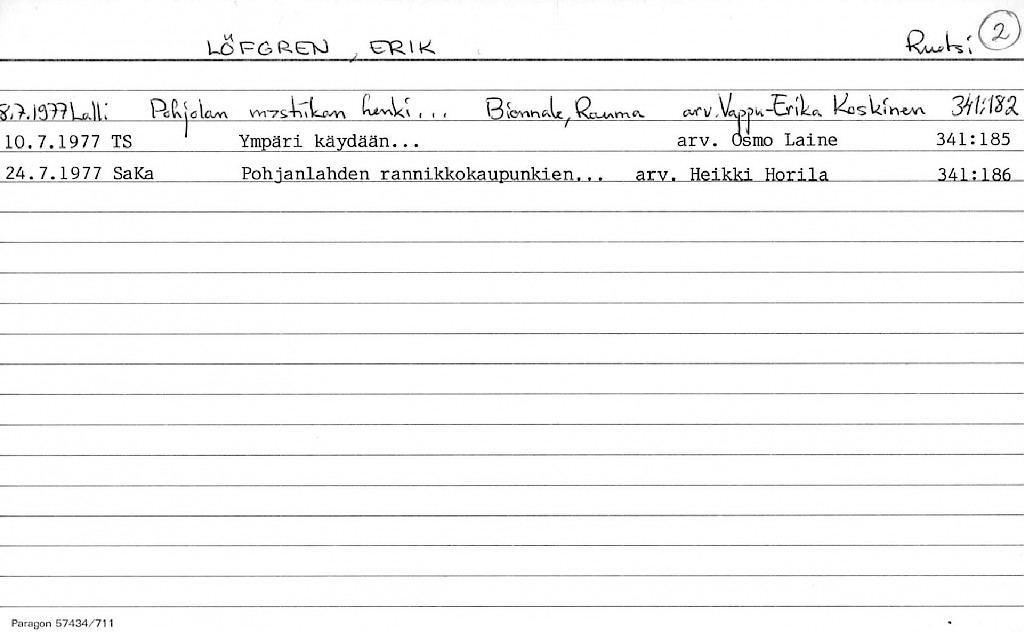 LÖFGREN, ERIK Ruotsi 2
8.7.1977 Lalli Pohjolan mystiikan henki... Biennale, Rauma arv. Vappu-Erika Koskinen 341:182
10.7.1977 TS Ympäri käydään... arv. Osmo Laine 341:185
24.7.1977 SaKa Pohjanlahden rannikkokaupunkien... arv. Heikki Horila 341:186
Paragon 57434/711